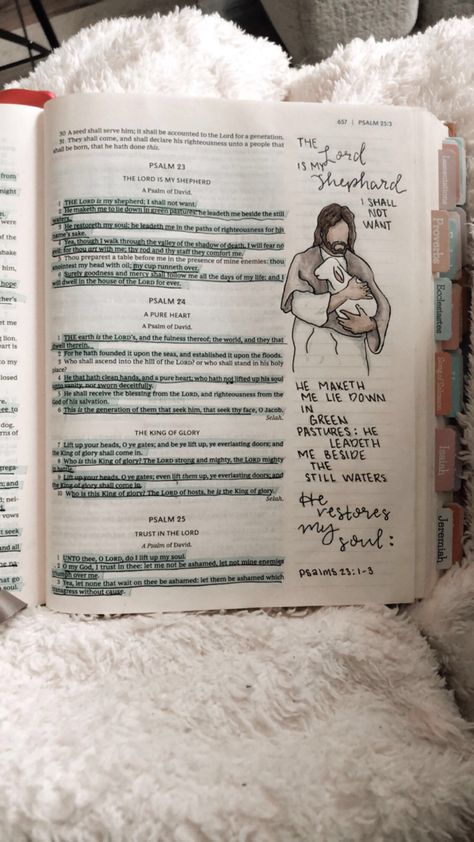 657 | PSALM 25:3
30 A seed shall serve him; it shall be accounted to the Lord for a generation.
31 They shall come, and shall declare his righteousness unto a people that
shall be born, that he hath done this.
PSALM 23
THE LORD IS MY SHEPHERD
A Psalm of David.
1 THE LORD is my shepherd; I shall not want.
2 He maketh me to lie down in green pastures: he leadeth me beside the still
waters.
3 He restoreth my soul: he leadeth me in the paths of righteousness for his
name's sake.
4 Yea, though I walk through the valley of the shadow of death, I will fear no
evil: for thou art with me; thy rod and thy staff they comfort me.
5 Thou preparest a table before me in the presence of mine enemies: thou
anointest my head with oil; my cup runneth over.
6 Surely goodness and mercy shall follow me all the days of my life: and I
will dwell in the house of the LORD for ever.
PSALM 24
A PURE HEART
A Psalm of David.
1 THE earth is the LORD's, and the fulness thereof; the world, and they that
dwell therein.
2 For he hath founded it upon the seas, and established it upon the floods.
3 Who shall ascend into the hill of the LORD? or who shall stand in his holy
place?
4 He that hath clean hands, and a pure heart; who hath not lifted up his soul
unto vanity, nor sworn deceitfully.
5 He shall receive the blessing from the LORD, and righteousness from the
God of his salvation.
6 This is the generation of them that seek him, that seek thy face, O Jacob.
Selah.
THE KING OF GLORY
7 Lift up your heads, O ye gates; and be ye lift up, ye everlasting doors; and
the King of glory shall come in.
8 Who is this King of glory? The LORD strong and mighty, the LORD mighty
in battle.
9 Lift up your heads, O ye gates; even lift them up, ye everlasting doors; and
the King of glory shall come in.
10 Who is this King of glory? The LORD of hosts, he is the King of glory.
Selah.
PSALM 25
TRUST IN THE LORD
A Psalm of David.
1 UNTO thee, O LORD, do I lift up my soul.
2 O my God, I trust in thee: let me not be ashamed, let not mine enemies
triumph over me.
3 Yea, let none that wait on thee be ashamed: let them be ashamed which
transgress without cause.
THE Lord
IS MY
Shephard
I SHALL
NOT
WANT
HE MAKETH
ME LIE DOWN
IN
GREEN
PASTURES: HE
LEADETH
ME BESIDE
THE
STILL WATERS
He
restores
my
soul:
psalms 23:1-3
Proverbs
Ecclesiastes
Song of Solomon
Isaiah
Jeremiah
Lamentations